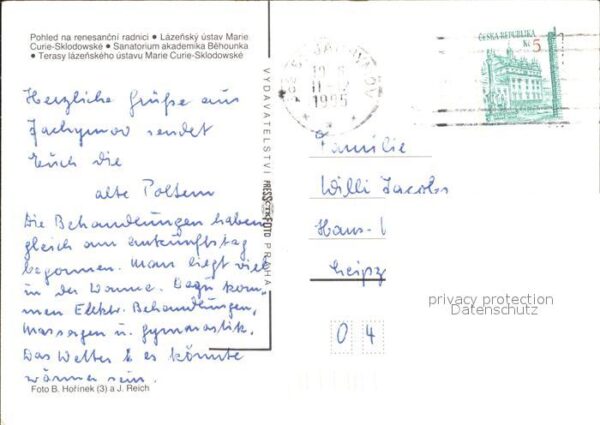 Pohled na renesanční radnici • Lázeňský ústav Marie
Curie-Sklodowské • Sanatorium akademika Běhounka
• Terasy lázeňského ústavu Marie Curie-Sklodowské
Herzliche Grüße aus
Jachymov sendet
Euch die
alte Poltern
Die Behandlungen haben
gleich am Ankunftstag
begonnen. Man liegt viel
in der Wanne. Dazu kom-
men Elektr. Behandlungen,
Massagen u. Gymnastik.
Das Wetter es könnte
wärmer sein.
Foto B. Hořínek (3) a J. Reich
VYDAVATELSTVÍ PRESSFOTO PRAHA
1995
ČESKÁ REPUBLIKA
Kč 5
Familie
Willi Jacobs
Haus-
Leipz
04
privacy protection
Datenschutz